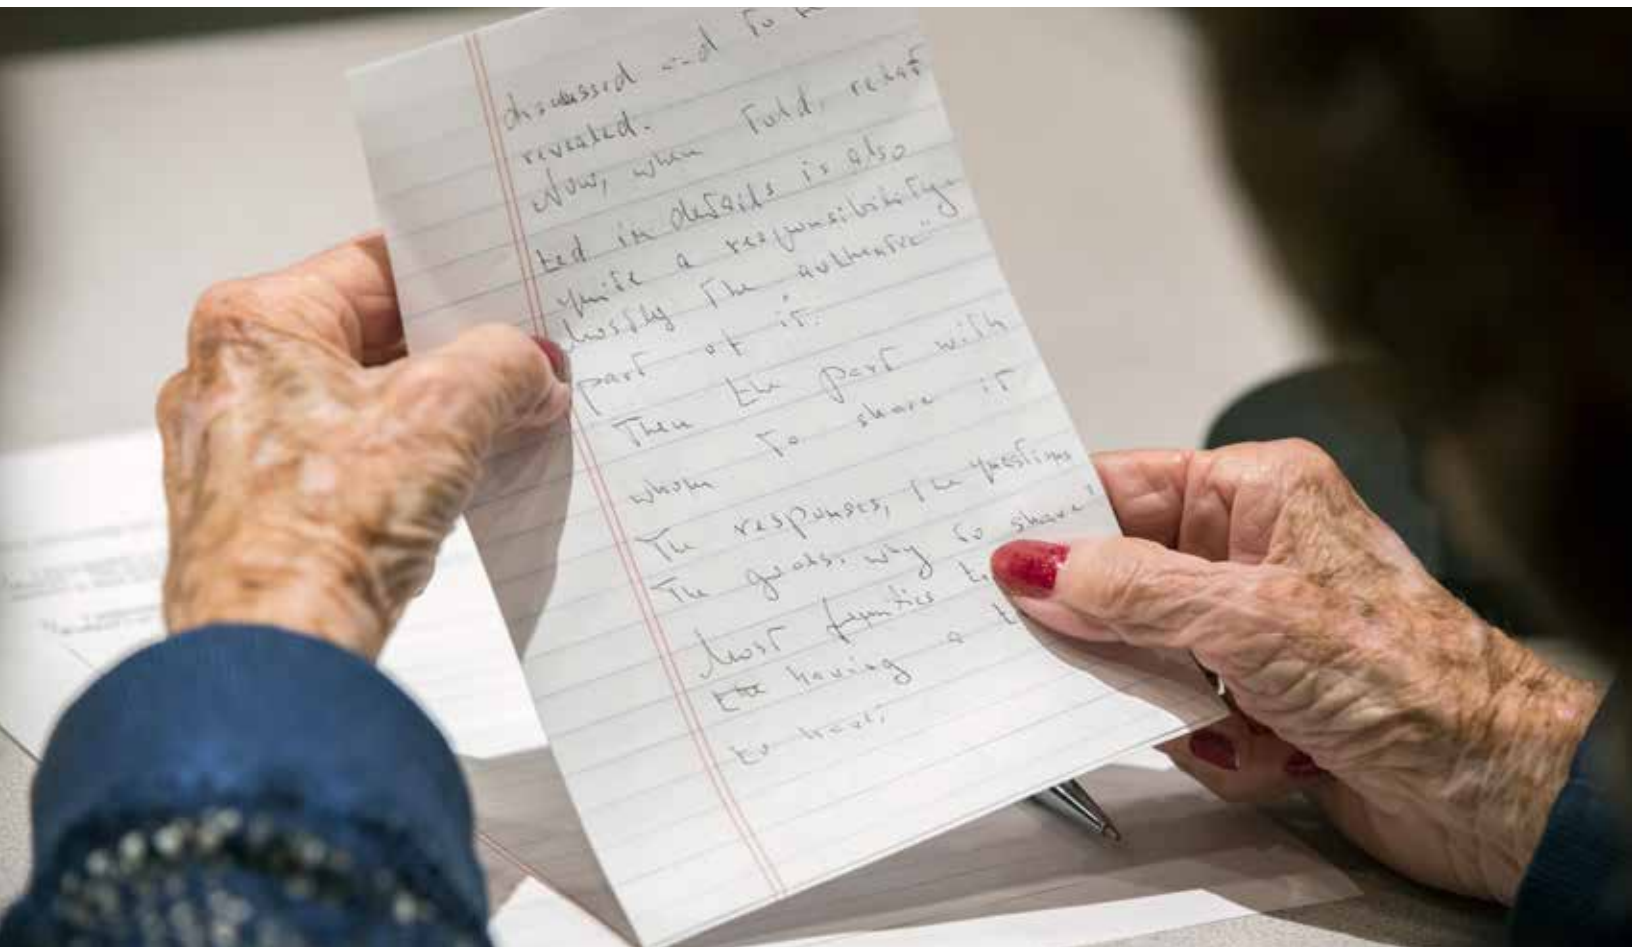 discussed and to
revealed.
Now, when told, rela
ted in details is also
quite a responsibility-
Mostly the authentic"
part of it.
Then the part with
whom to share it
The responses, the questions
The goals, why to share"
Most
the having a
to have,